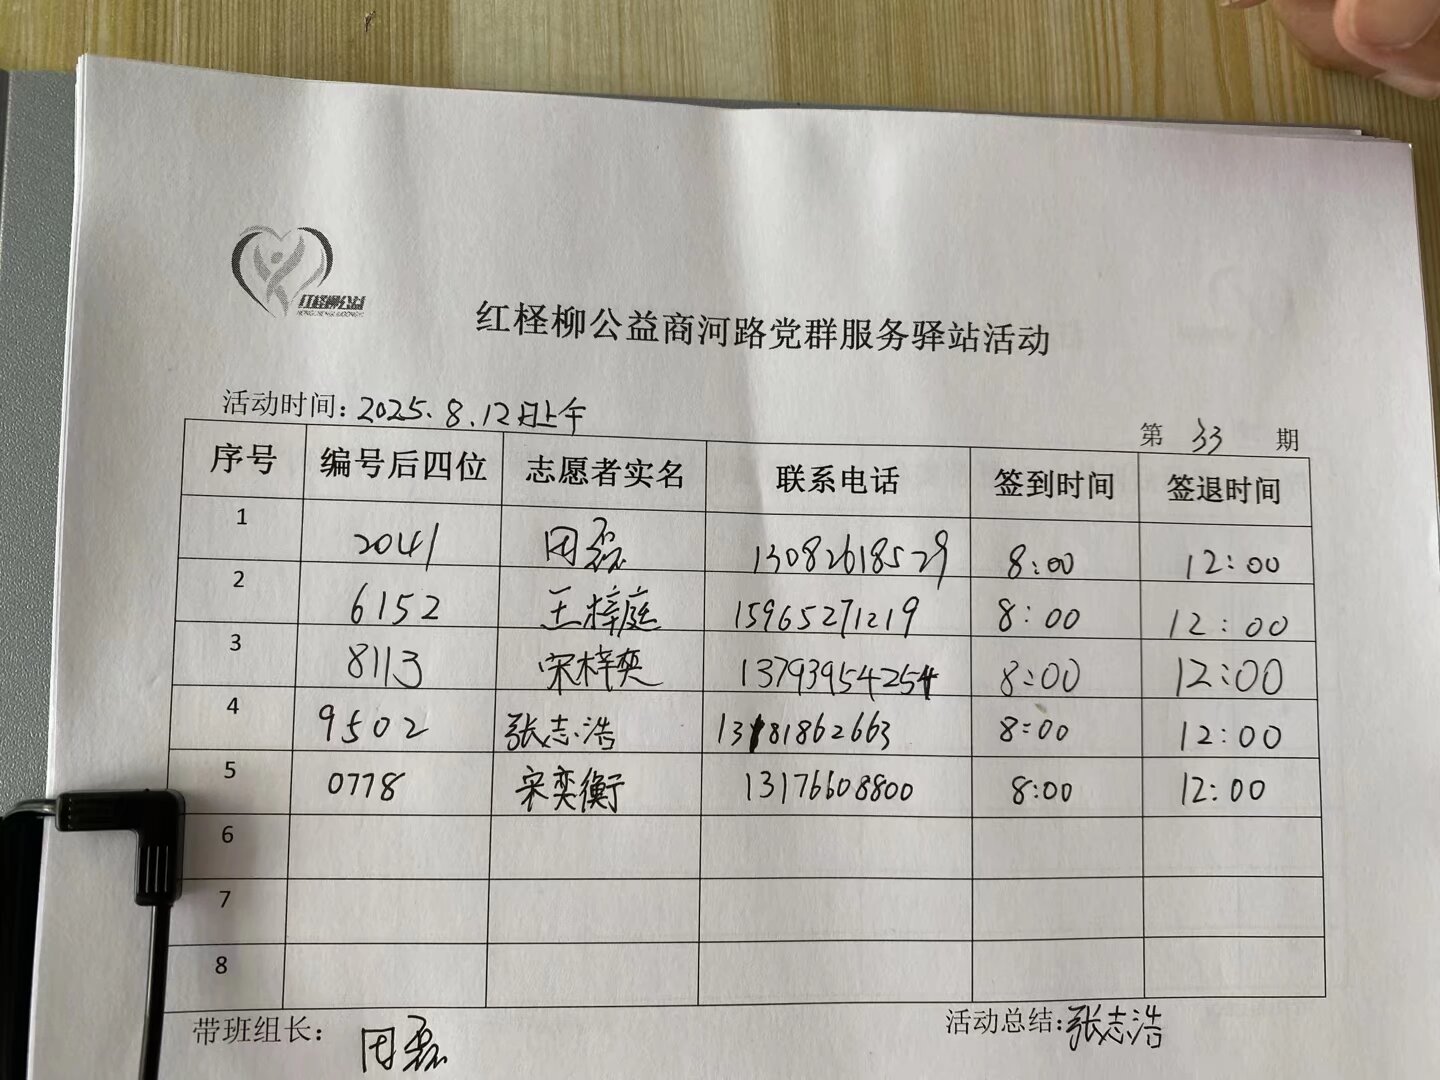 红柽柳公益
红柽柳公益商河路党群服务驿站活动
活动时间：2025.8.12日上午
第 33 期
序号 编号后四位 志愿者实名 联系电话 签到时间 签退时间
1 2041 田磊 13082618529 8:00 12:00
2 6152 王梓庭 15965271219 8:00 12:00
3 8113 宋梓奕 13793954254 8:00 12:00
4 9502 张志浩 13181862663 8:00 12:00
5 0778 宋奕衡 13176608800 8:00 12:00
6
7
8
带班组长：田磊 活动总结：张志浩